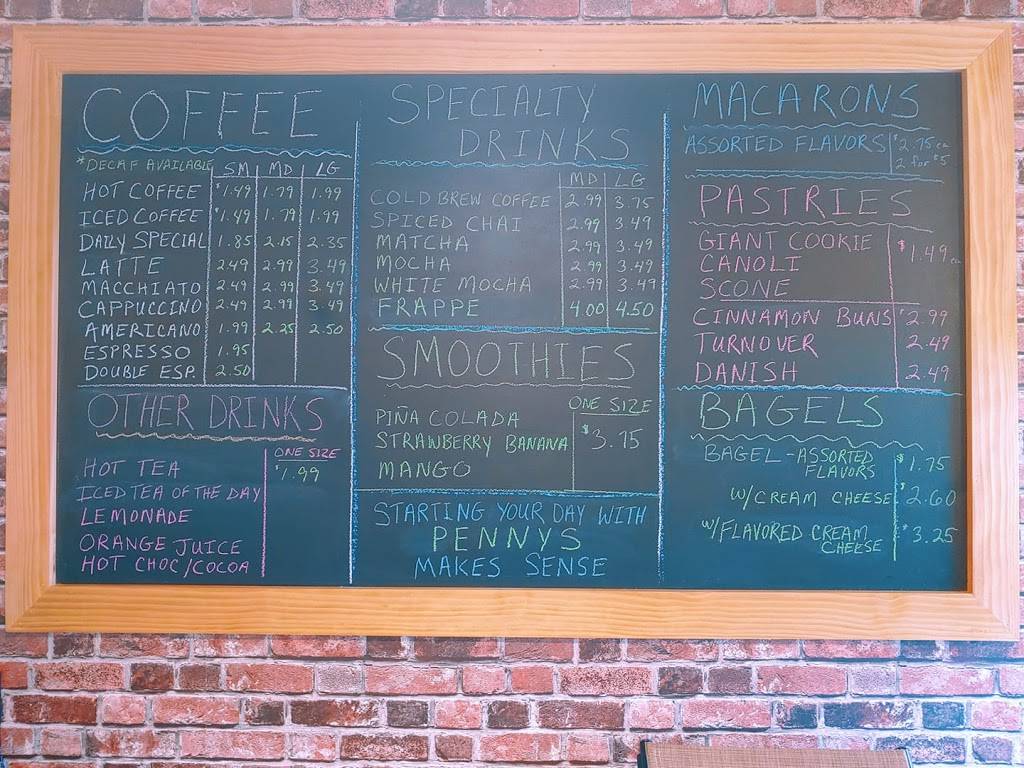 COFFEE
*DECAF AVAILABLE SM MD LG
HOT COFFEE $1.49 1.79 1.99
ICED COFFEE $1.49 1.79 1.99
DAILY SPECIAL 1.85 2.15 2.35
LATTE 2.49 2.99 3.49
MACCHIATO 2.49 2.99 3.49
CAPPUCCINO 2.49 2.99 3.49
AMERICANO 1.99 2.25 2.50
ESPRESSO 1.95
DOUBLE ESP. 2.50
OTHER DRINKS
ONE SIZE
HOT TEA $1.99
ICED TEA OF THE DAY
LEMONADE
ORANGE JUICE
HOT CHOC/COCOA
SPECIALTY
DRINKS
MD LG
COLD BREW COFFEE 2.99 3.75
SPICED CHAI 2.99 3.49
MATCHA 2.99 3.49
MOCHA 2.99 3.49
WHITE MOCHA 2.99 3.49
FRAPPE 4.00 4.50
SMOOTHIES
ONE SIZE
PIÑA COLADA
STRAWBERRY BANANA $3.75
MANGO
STARTING YOUR DAY WITH
PENNYS
MAKES SENSE
MACARONS
ASSORTED FLAVORS $2.75 ea
2 for $5
PASTRIES
GIANT COOKIE $1.49 ea
CANOLI
SCONE
CINNAMON BUNS $2.99
TURNOVER 2.49
DANISH 2.49
BAGELS
BAGEL-ASSORTED $1.75
FLAVORS
W/CREAM CHEESE $2.60
W/FLAVORED CREAM $3.25
CHEESE